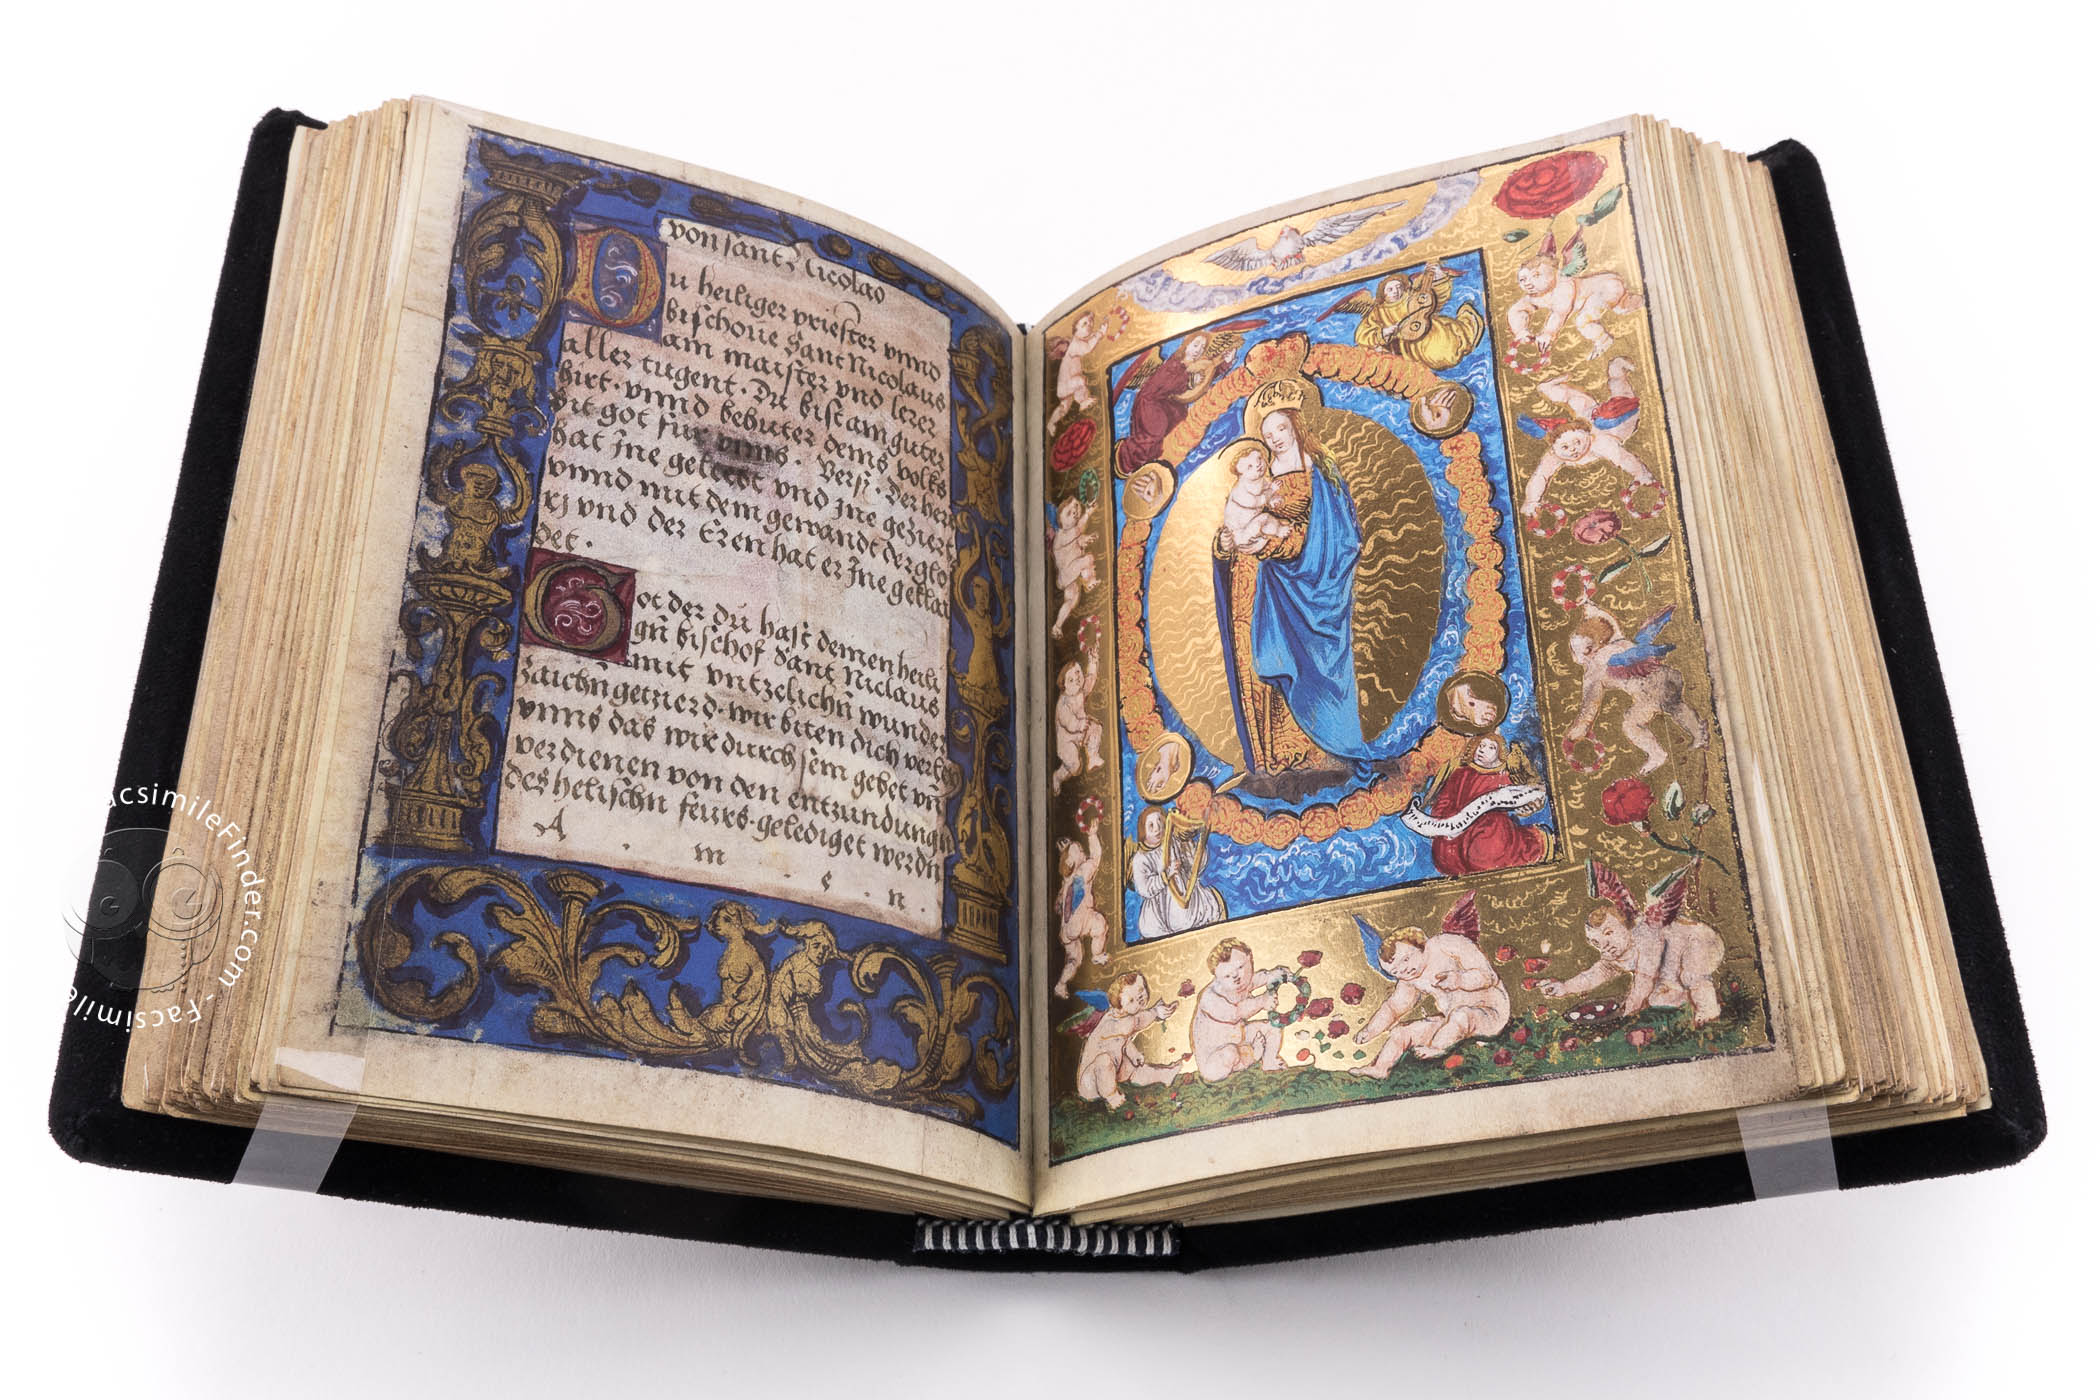 von sant Nicolao
Du heiliger priester vnnd
bischove Sant Nicolaus
am maister vnd lerer
aller tugent. Du bist am guter
hirt. vnnd behuter deins volks
Bit got fur vnns. Vers. Der her
hat jne gelebt vnd jne geziert
vnnd mit dem gewandt der glo
rj vnd der Eren hat er jne geklai
det.
Got der du hast deinen heili
gn bischof Sant Niclaus
mit vntzelichn wunder
zaichn getzierd. wir biten dich verley
vnns das wir durch sein gebet vn
verdienen von den entzundungn
des helischn feurs. gelediget werdn
A . m . e . n .
FacsimileFinder.com - Facsimile